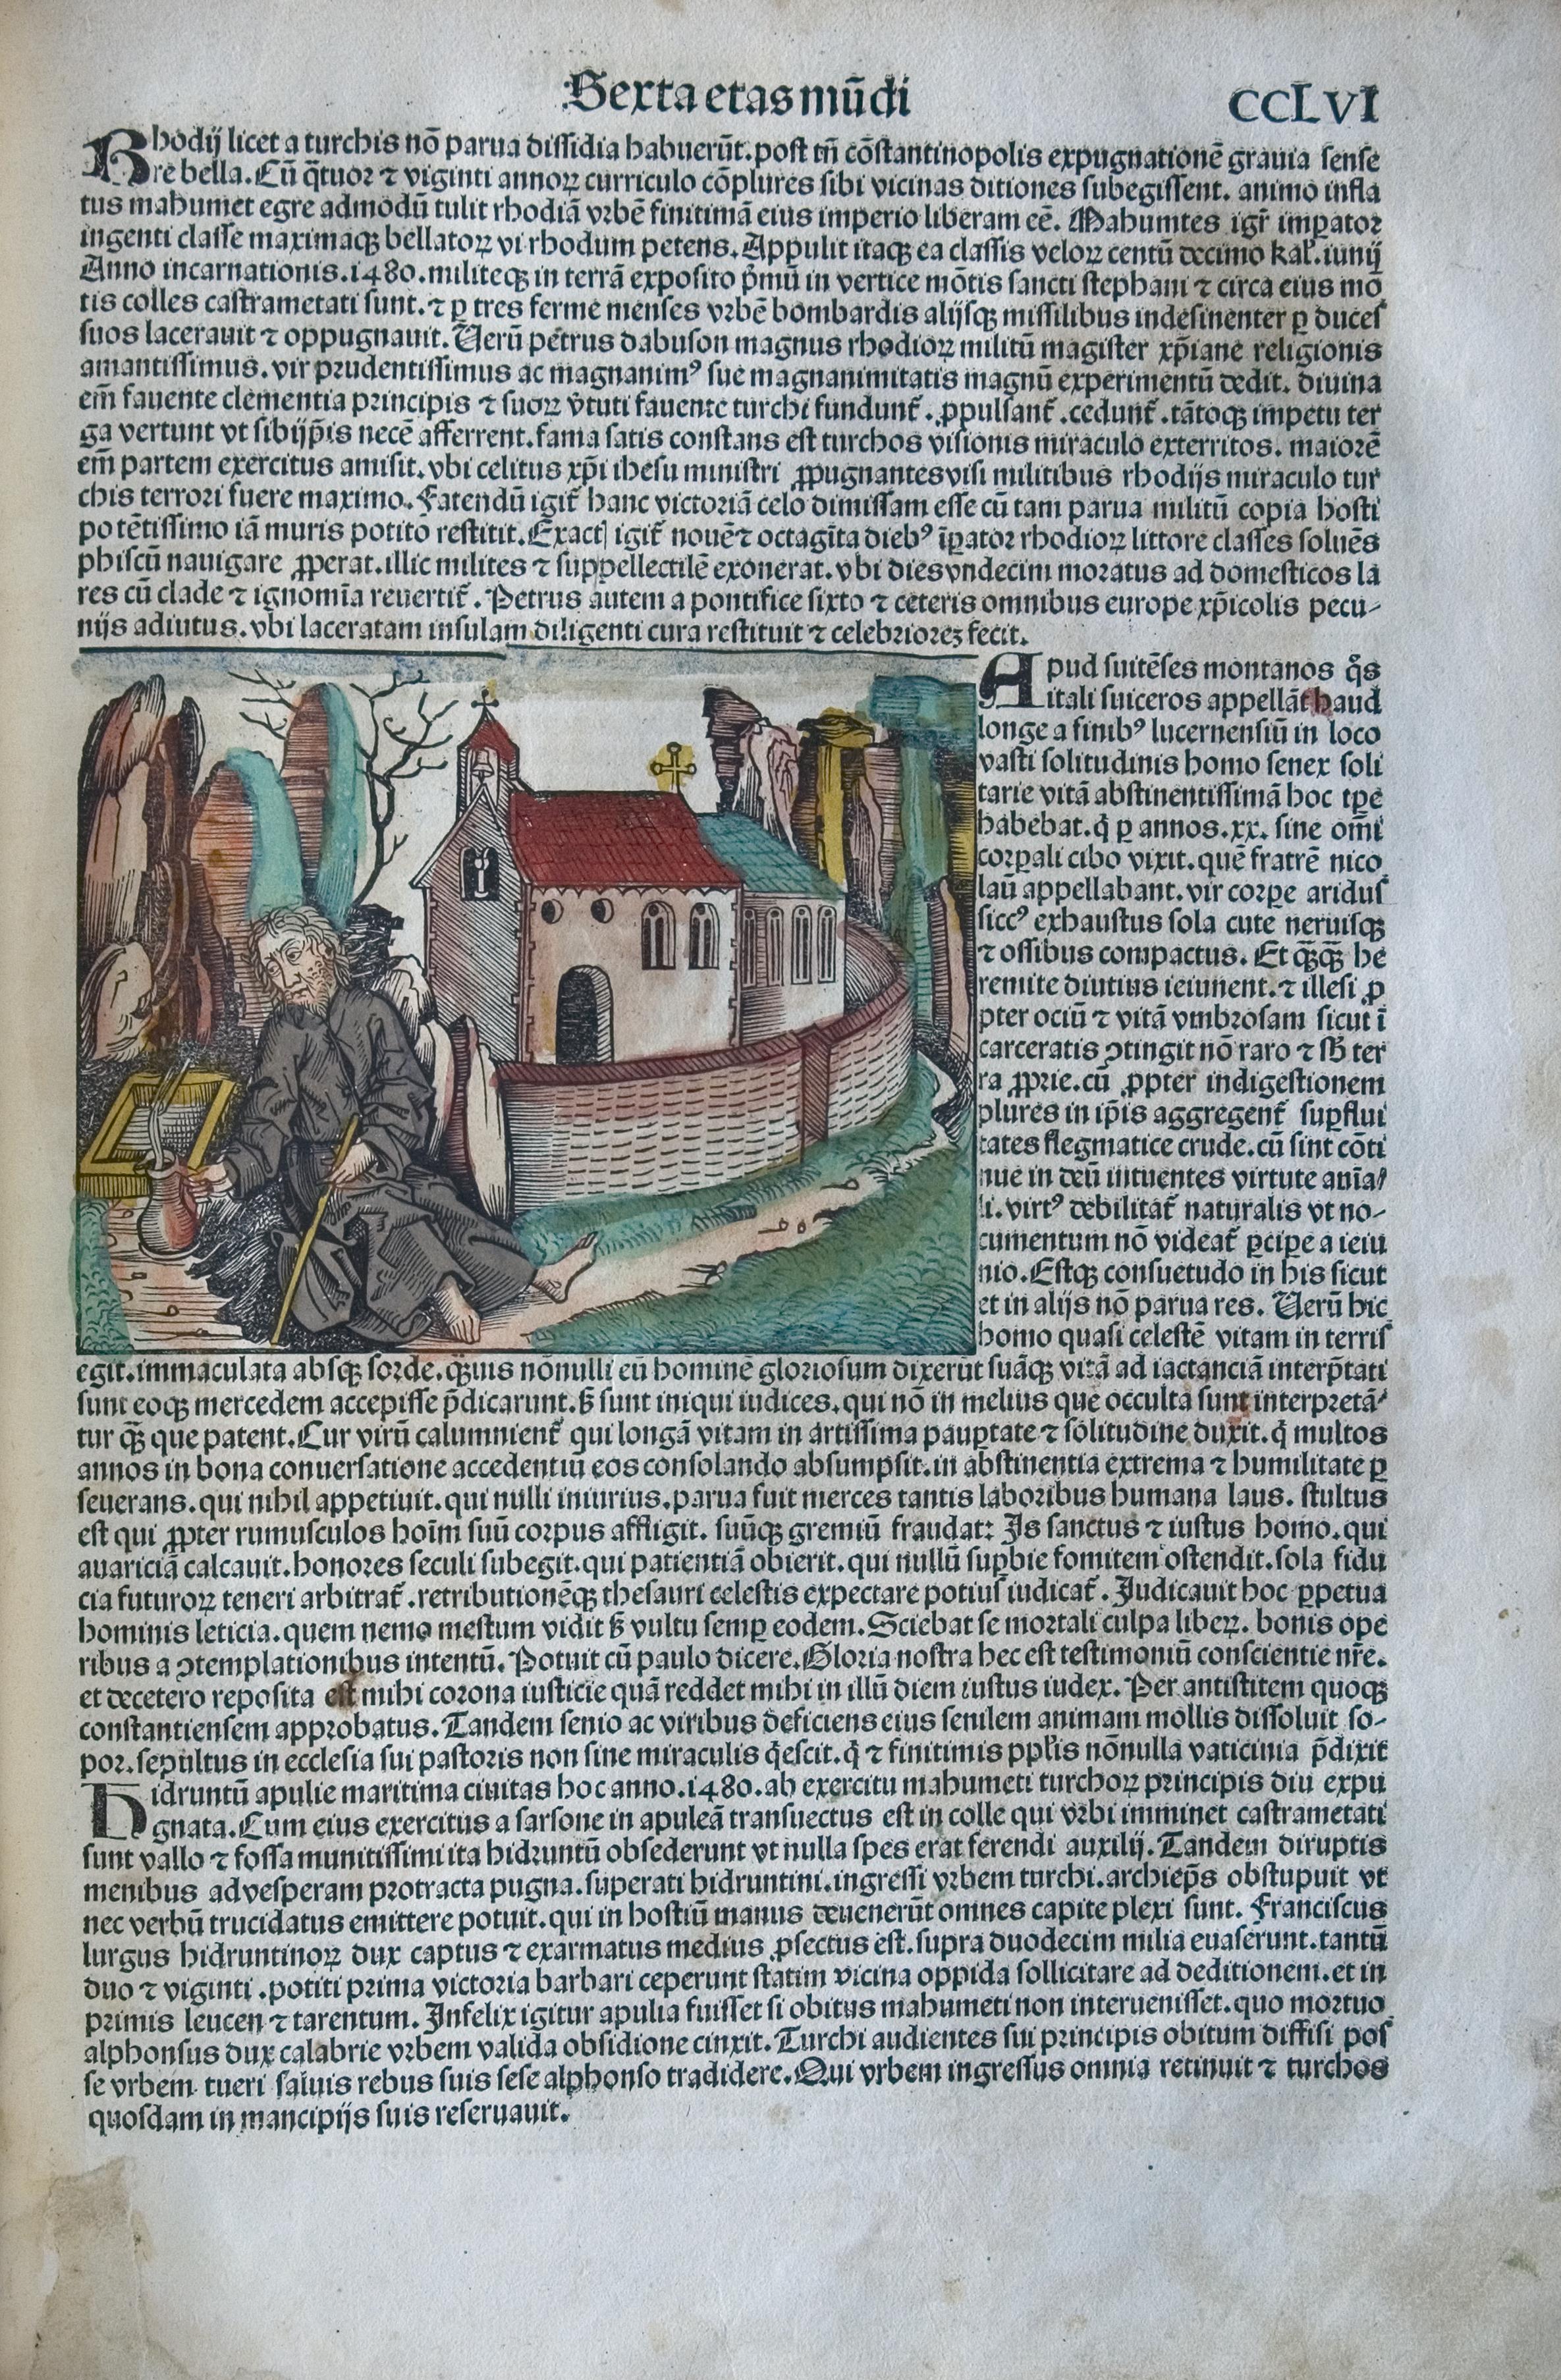 Sexta etas mũdi
CCLVI
Rhodij licet a turchis nõ parua dissidia habuerũt. post tñ cõstantinopolis expugnationẽ grauia sense
re bella. Cũ q̃tuor ⁊ viginti annoꝝ curriculo cõplures sibi vicinas ditiones subegissent. animo infla
tus mahumet egre admodũ tulit rhodiã vrbẽ finitimã eius imperio liberam eẽ. Mahumtes igr̃ imꝑator
ingenti classe maximaqꝫ bellatoꝝ vi rhodum petens. Appulit itaqꝫ ea classis veloꝝ centũ decimo kal̃. iunij
Anno incarnationis .1480. militeqꝫ in terrã exposito p̃mũ in vertice mõtis sancti stephani ⁊ circa eius mõ
tis colles castrametati sunt. ⁊ ꝑ tres ferme menses vrbẽ bombardis alijsqꝫ missilibus indesinenter ꝑ duces
suos lacerauit ⁊ oppugnauit. Uerũ petrus dabuson magnus rhodioꝝ militũ magister xp̃iane religionis
amantissimus. vir prudentissimus ac magnanimꝰ sue magnanimitatis magnũ experimentũ dedit. diuina
em̃ fauente clementia principis ⁊ suoꝝ v̾tuti fauente turchi fundunt̃. ꝓpulsant̃. cedunt̃. tãtoqꝫ impetu ter
ga vertunt vt sibijp̃is necẽ afferrent. fama satis constans est turchos visionis miraculo exterritos. maiorẽ
em̃ partem exercitus amisit. vbi celitus xp̃i ihesu ministri ꝓpugnantes visi militibus rhodijs miraculo tur
chis terrori fuere maximo. Fatendũ igit̃ hanc victoriã celo dimissam esse cũ tam parua militũ copia hosti
potẽtissimo iã muris potito restitit. Exact igit̃ nouẽ ⁊ octagĩta diebꝰ ĩꝑator rhodioꝝ littore classes soluẽs
phiscũ nauigare ꝓperat. illic milites ⁊ suppellectilẽ exonerat. vbi dies vndecim moratus ad domesticos la
res cũ clade ⁊ ignomĩa reuertit̃. Petrus autem a pontifice sixto ⁊ ceteris omnibus europe xp̃icolis pecu-
nijs adiutus. vbi laceratam insulam diligenti cura restituit ⁊ celebriorẽ fecit.
Apud suitẽses montanos q̊s
itali suiceros appellãt haud
longe a finibꝰ lucernensiũ in loco
vasti solitudinis homo senex soli
tarie vitã abstinentissimã hoc tꝑe
habebat. q̇ ꝑ annos .xx. sine om̃i
corꝑali cibo vixit. quẽ fratrẽ nico
laũ appellabant. vir corꝑe aridus
siccꝰ exhaustus sola cute neruisqꝫ
⁊ ossibus compactus. Et q̃q̃ he
remite diutius ieiunent. ⁊ illesi ꝓ
pter ociũ ⁊ vitã vmbrosam sicut ĩ
carceratis ꝯtingit nõ raro ⁊ sb̃ ter
ra ꝓprie. cũ ꝓpter indigestionem
plures in ip̃is aggregent̃ suꝑflui
tates flegmatice crude. cũ sint cõti
nue in deũ intuentes virtute anĩa/
li. virtꝰ debilitat̃ naturalis vt no-
cumentum nõ videat̃ ꝑcipe a ieiu
nio. Estqꝫ consuetudo in his sicut
et in alijs nõ parua res. Uerũ hic
homo quasi celestẽ vitam in terris
egit. immaculata absqꝫ sorde. q̃uis nõnulli eũ hominẽ gloriosum dixerũt suãqꝫ vitã ad iactanciã interp̃tati
sunt eoqꝫ mercedem accepisse p̃dicarunt. sꝫ sunt iniqui iudices. qui nõ in melius que occulta sunt interpretã/
tur q̃ que patent. Cur virũ calumnient̃ qui longã vitam in artissima pauꝑtate ⁊ solitudine duxit. q̇ multos
annos in bona conuersatione accedentiũ eos consolando absumpsit. in abstinentia extrema ⁊ humilitate ꝑ
seuerans. qui nihil appetiuit. qui nulli iniurius. parua fuit merces tantis laboribus humana laus. stultus
est qui ꝓpter rumusculos hoĩm suũ corpus affligit. suũqꝫ gremiũ fraudat: Is sanctus ⁊ iustus homo. qui
auariciã calcauit. honores seculi subegit. qui patientiã obierit. qui nullũ suꝑbie fomitem ostendit. sola fidu
cia futuroꝝ teneri arbitrat̃. retributionẽqꝫ thesauri celestis expectare potius iudicat̃. Judicauit hoc ꝑpetua
hominis leticia. quem nemo mestum vidit sꝫ vultu semꝑ eodem. Sciebat se mortali culpa libeꝝ. bonis ope
ribus a ꝯtemplationibus intentũ. Potuit cũ paulo dicere. Gloria nostra hec est testimoniũ conscientie nr̃e.
et decetero reposita est mihi corona iusticie quã reddet mihi in illũ diem iustus iudex. Per antistitem quoqꝫ
constantiensem approbatus. Tandem senio ac viribus deficiens eius senilem animam mollis dissoluit so-
por. sepultus in ecclesia sui pastoris non sine miraculis q̇escit. q̇ ⁊ finitimis ppl̃is nõnulla vaticinia p̃dixit
Hidruntũ apulie maritima ciuitas hoc anno .1480. ab exercitu mahumeti turchoꝝ principis diu expu
gnata. Cum eius exercitus a sarsone in apuleã transuectus est in colle qui vrbi imminet castrametati
sunt vallo ⁊ fossa munitissimi ita hidruntũ obsederunt vt nulla spes erat ferendi auxilij. Tandem diruptis
menibus ad vesperam protracta pugna. superati hidruntini. ingressi vrbem turchi. archiep̃s obstupuit vt
nec verbũ trucidatus emittere potuit. qui in hostiũ manus deuenerũt omnes capite plexi sunt. Franciscus
lurgus hidruntinoꝝ dux captus ⁊ exarmatus medius ꝓsectus est. supra duodecim milia euaserunt. tantũ
duo ⁊ viginti. potiti prima victoria barbari ceperunt statim vicina oppida sollicitare ad deditionem. et in
primis leucen ⁊ tarentum. Infelix igitur apulia fuisset si obitus mahumeti non interuenisset. quo mortuo
alphonsus dux calabrie vrbem valida obsidione cinxit. Turchi audientes sui principis obitum diffisi pos
se vrbem tueri saluis rebus suis sese alphonso tradidere. Qui vrbem ingressus omnia retinuit ⁊ turchos
quosdam in mancipijs suis reseruauit.